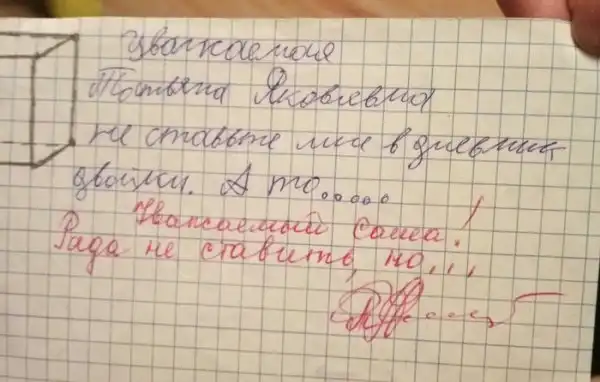 Уважаемая
Татьяна Яковлевна
не ставьте мне в дневник
двойки. А то.....
Уважаемый Саша!
Рада не ставить, но...